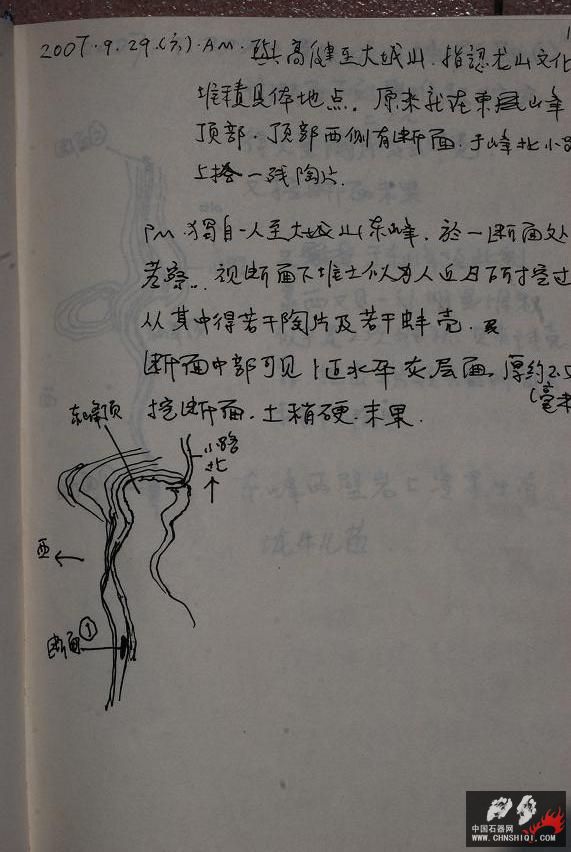 1
2007.9.29.(六).AM. 与高健至大城山.指認龙山文化
堆積具体地点。原来就在東山峰
顶部.顶部西侧有断面.于峰北小路
上拾一残陶片.
PM.独自一人至大城山东峰.於一断面处
考察..视断面下堆土似为人近日所挖过
从其中得若干陶片及若干蚌壳.
断面中部可见1近水平灰层面.厚约2.5
(毫米
挖断面.土稍硬.未果.
东峰顶
小路
北
西
断面①
东峰西壁岩上
中国石器网
WWW.CHNSHIQI.COM